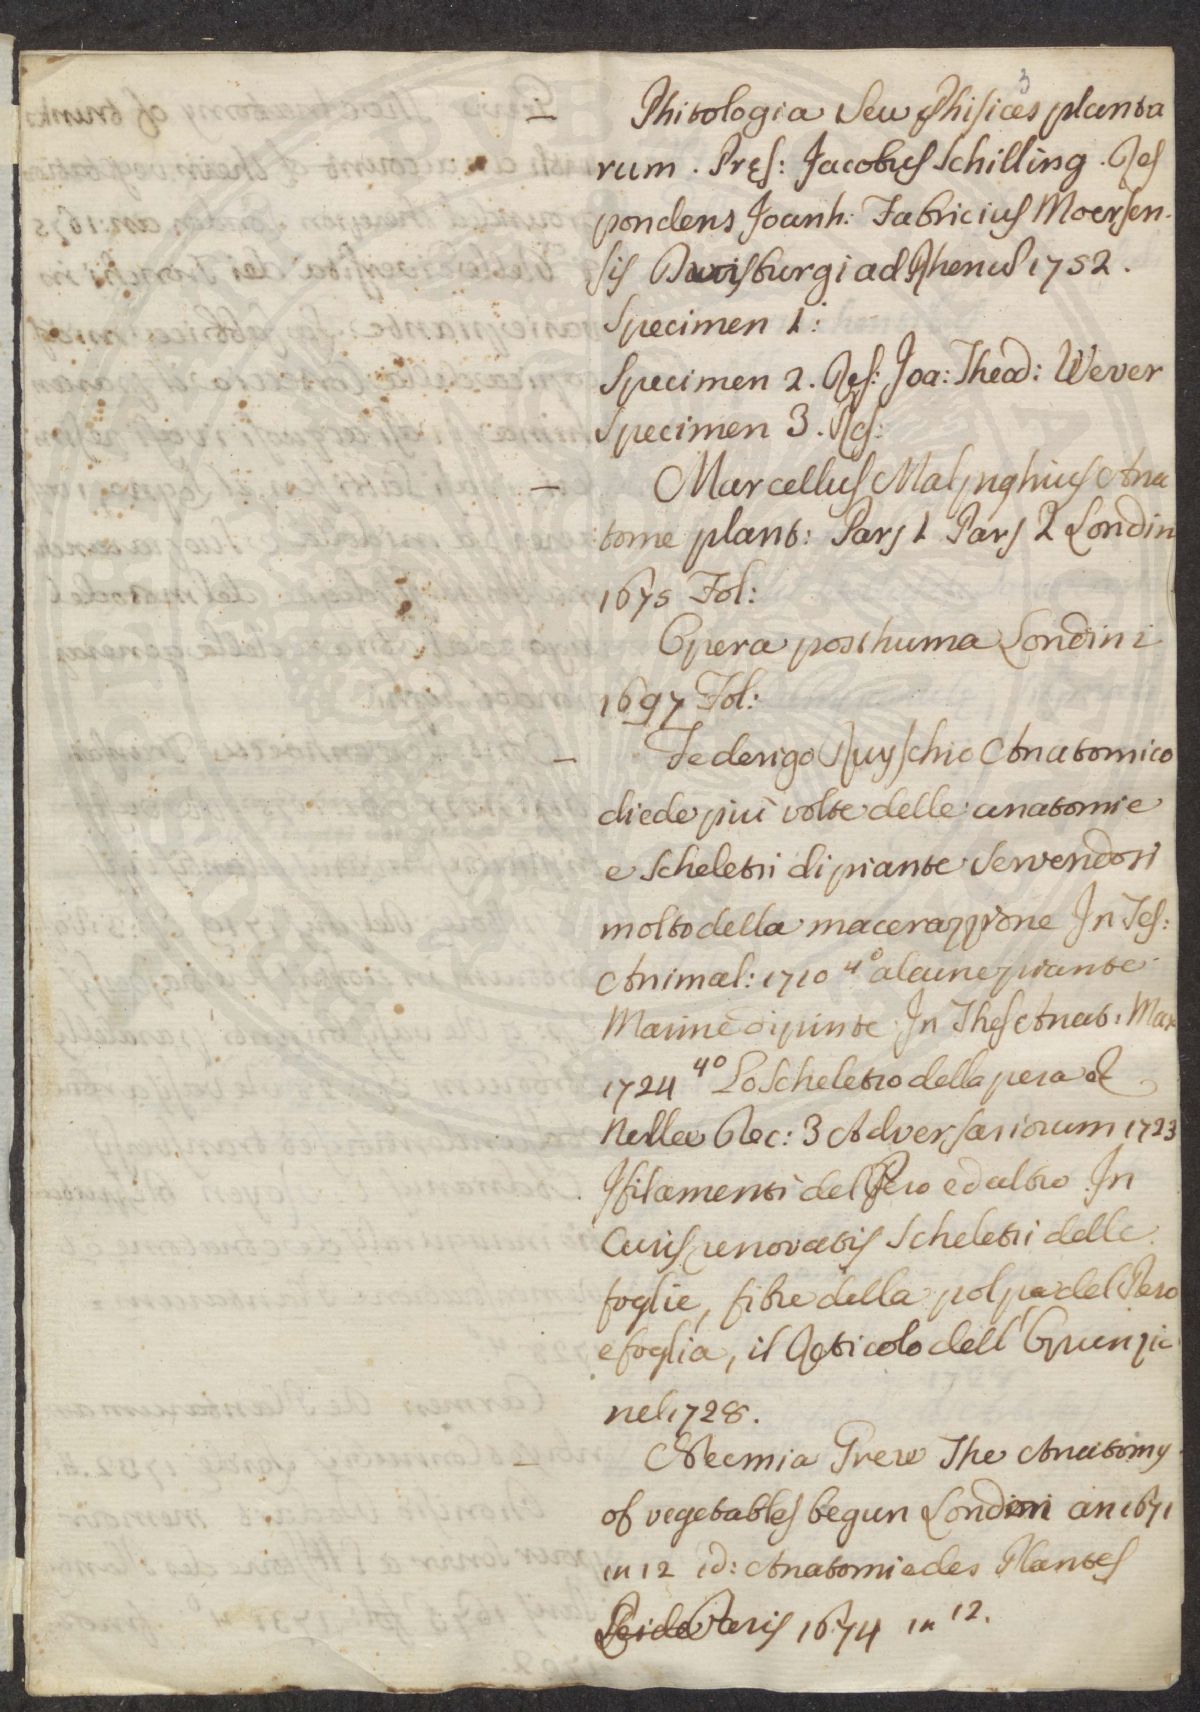 3
Phitologia seu Phisices planta
rum. Pręs: Jacobus Schilling. Res
pondens Joanh: Fabricius Moersen-
sis Duisburgi ad Rhenus 1752.
Specimen 1:
Specimen 2. Res: Joa: Theod: Wever
Specimen 3. Res:
— Marcellus Malpighius Ana
tome plant: Pars 1 Pars 2 Londin
1675 Fol:
Opera posthuma Londini
1697 Fol:
— Federigo Ruyschio Anatomico
diede più volte delle anatomie
e scheletri di piante servendosi
molto della macerazzione In Tes:
Animal: 1710 4° alcune piante
Marine dipinte In Thes Anat: Max
1724 4° Lo scheletro della pera &
Nella Dec: 3 Adversariorum 1723
I filamenti del Pero ed altro. In
Curis renovatis scheletri delle
foglie, fibre della polpa del Pero
e foglia, il Reticolo dell'
nel 1728.
— Neemia Grew The Anatomy
of vegetables begun Londini an 1671
in 12 id: Anatomie des Plantes
Paris 1674 in 12.